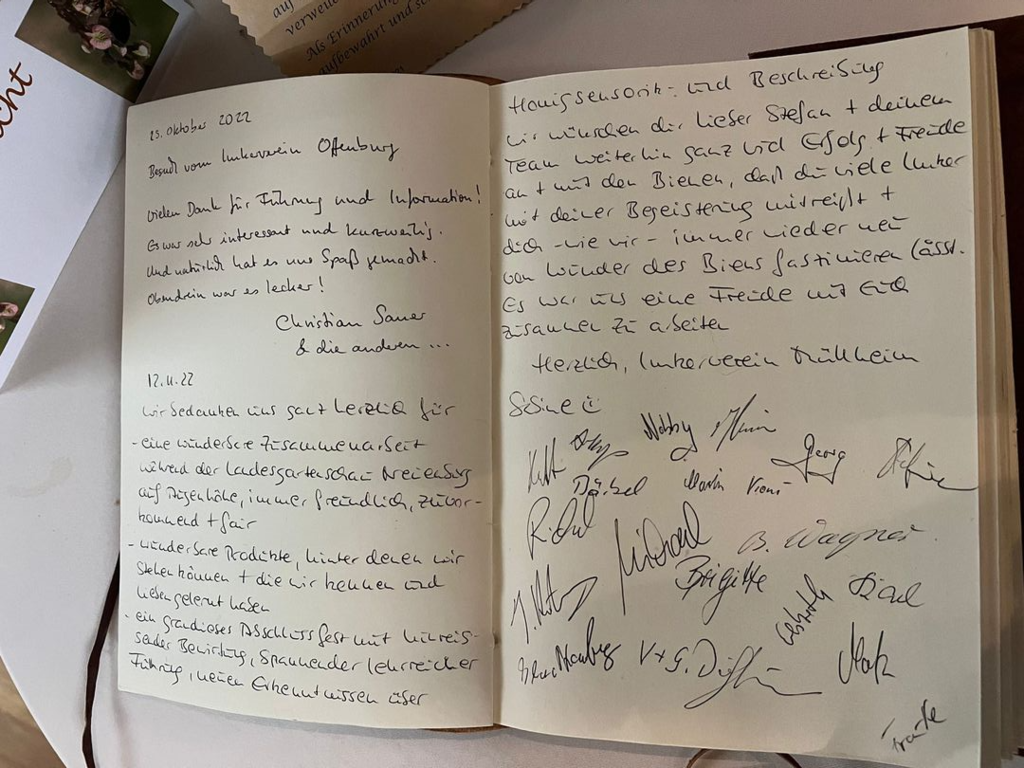 cht
auf
verweile
Als Erinnerung
aufbewahrt und
23. Oktober 2022
Besuch vom Imkerverein Offenburg
Vielen Dank für Führung und Information!
Es war sehr interessant und kurzweilig.
Und natürlich hat es uns Spaß gemacht.
Obendrein war es lecker!
Christian Sauer
& die anderen ...
12.11.22
wir bedanken uns ganz herzlich für
- eine wunderbare Zusammenarbeit
während der Landesgartenschau Neuenburg
auf Augenhöhe, immer freundlich, zuvor-
kommend + fair
- wunderbare Produkte, hinter denen wir
stehen können + die wir kennen und
lieben gelernt haben
- ein grandioses Abschlussfest mit hinreis-
sender Bewirtung, spannender lehrreicher
Führung, neuen Erkenntnissen über
Honigsensorik- und Beschreibung
Wir wünschen dir lieber Stefan + deinem
Team weiterhin ganz viel Erfolg + Freude
an + mit den Bienen, daß du viele Imker
mit deiner Begeisterung mitreißt +
dich - wie wir - immer wieder neu
vom Wunder des Biens faszinieren lässt.
Es war uns eine Freude mit Euch
zusammen zu arbeiten
Herzlich, Imkerverein Müllheim
Sabine ☺
Nobby
Georg
Martin
Richard
Michael
B. Wagner
Brigitte
V + G.
Traute